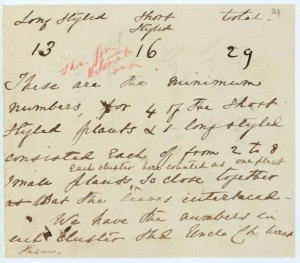 29
Long Styled Short Styled total.
13 16 29
These are the minimum
numbers, for 4 of the Short
Styled plants & 1 long styled
consisted each of from 2 to 8
Each cluster here counted as one plant
small plants, so close together
that the leaves interlaced—
We have the numbers in
each cluster shd Uncle Ch. want
them.